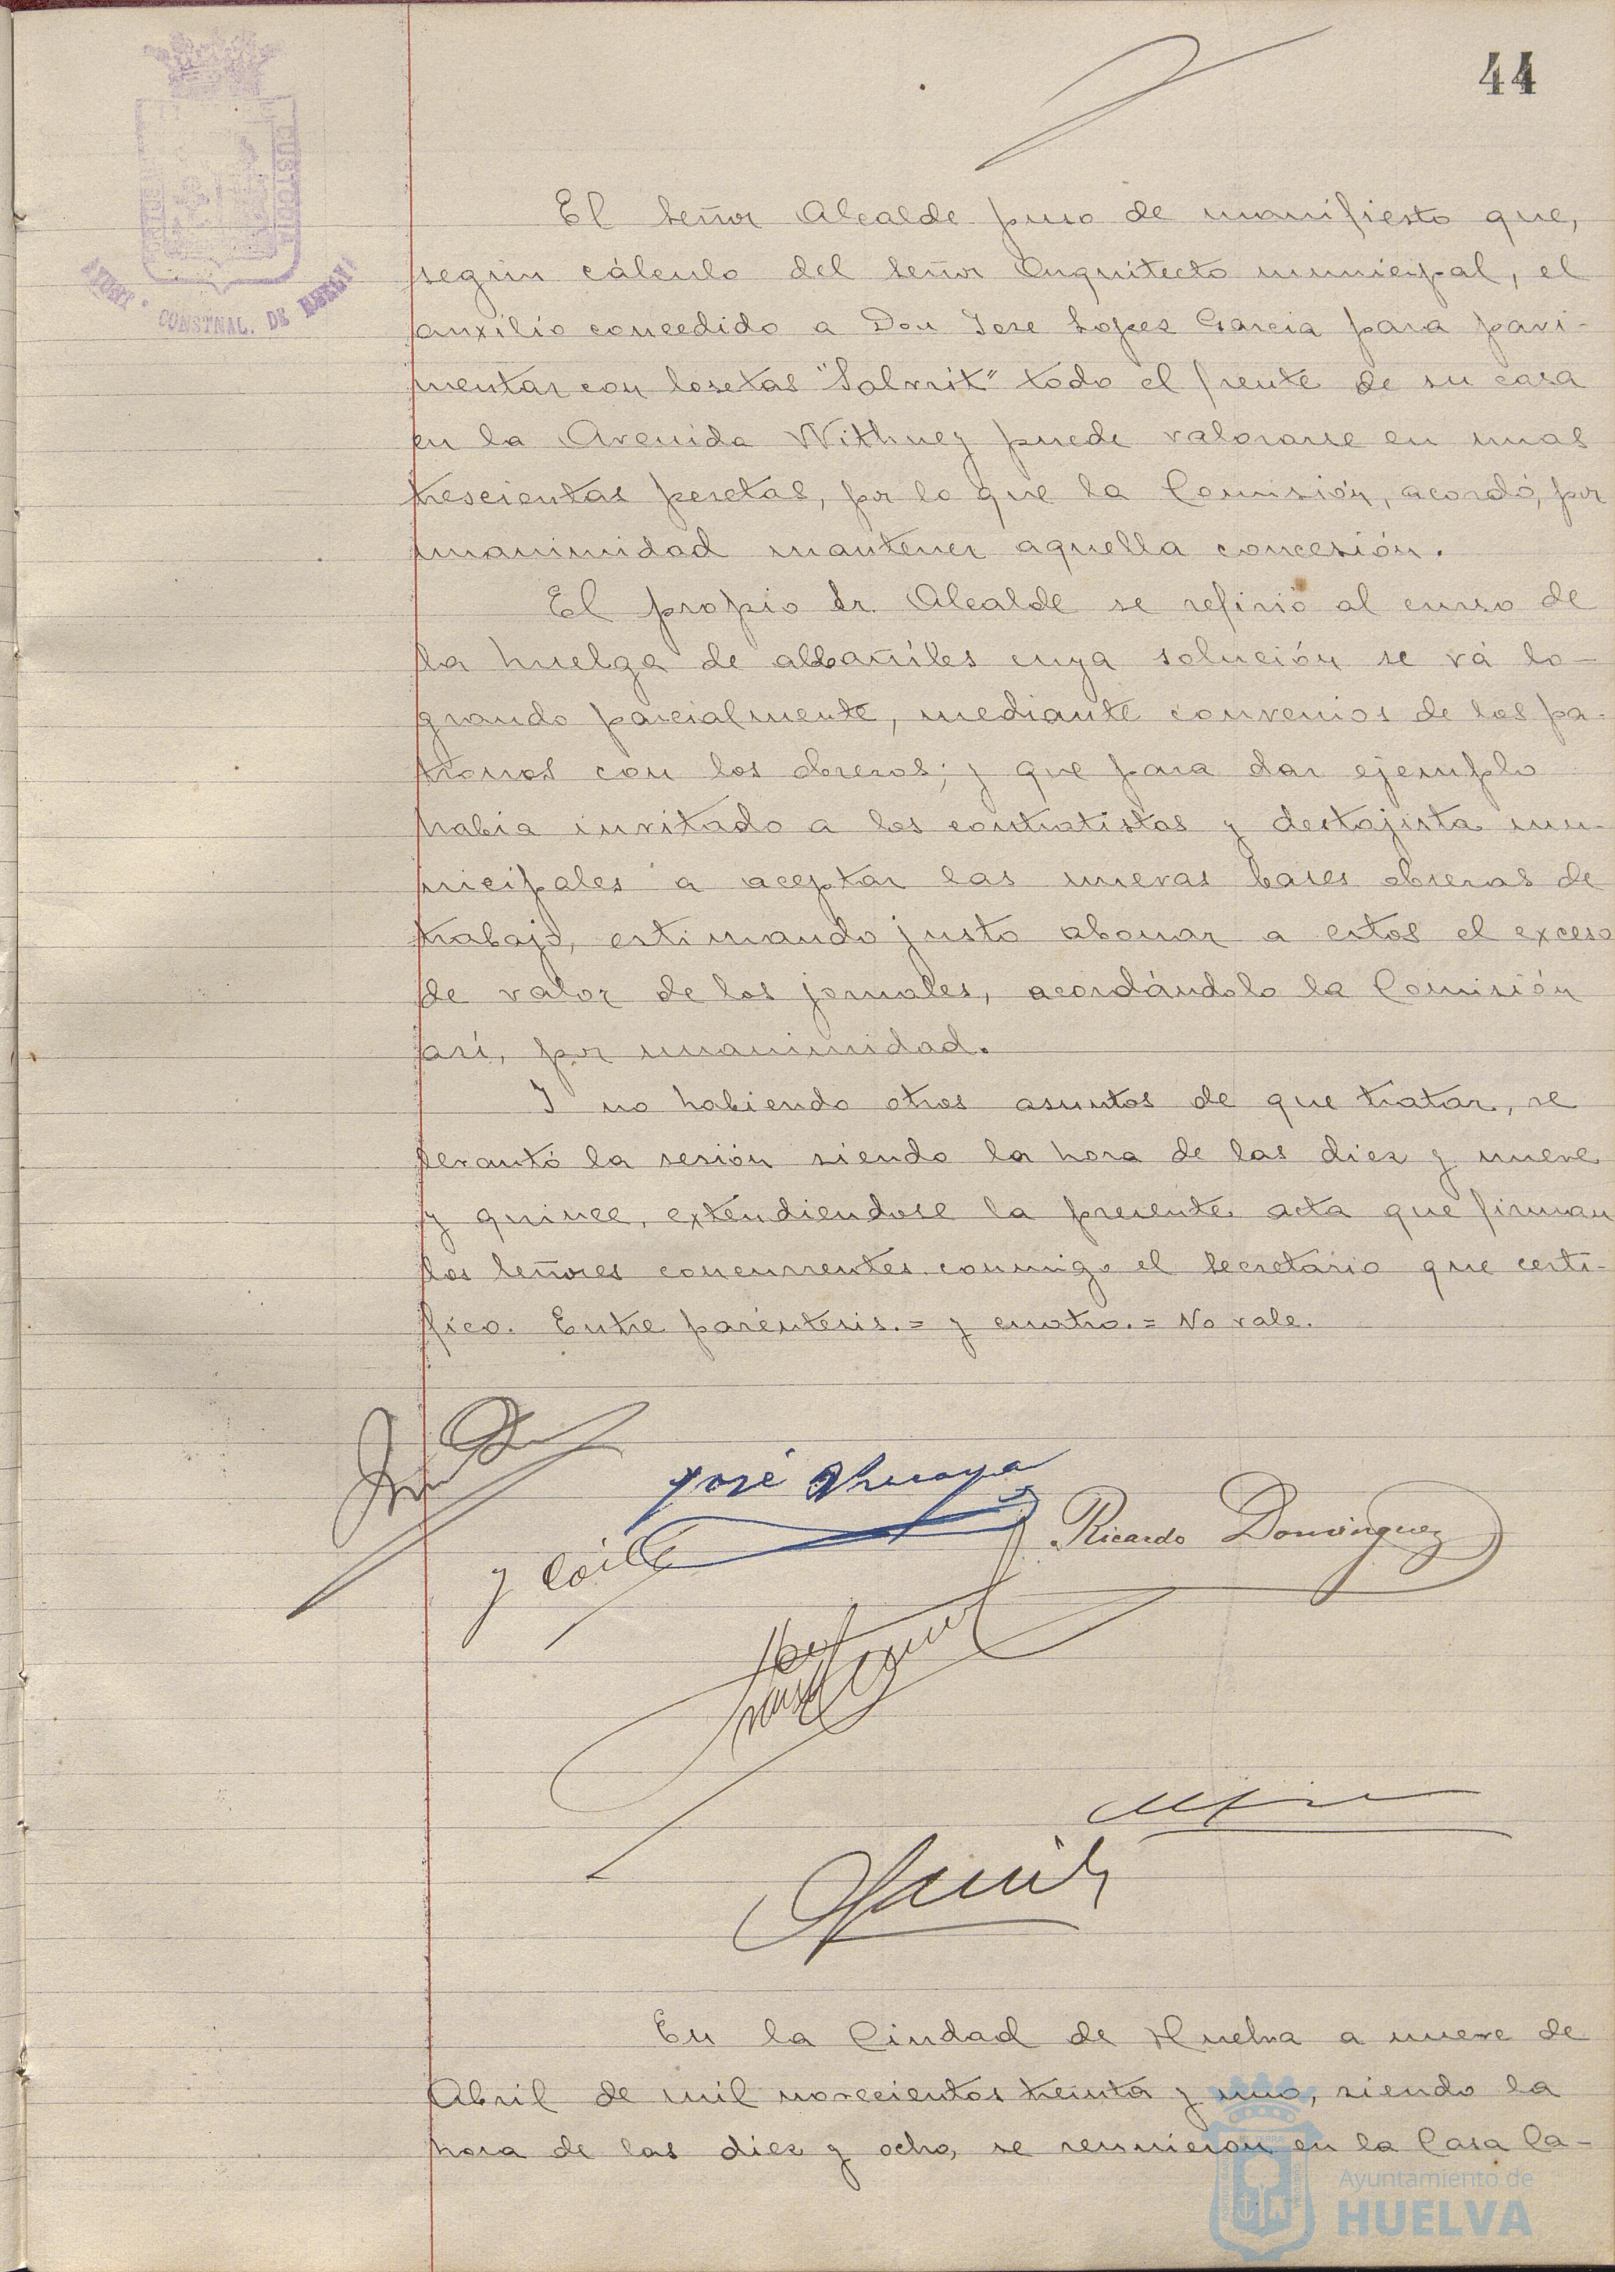 44
AYUNT° CONSTNAL. DE HUELVA
CUSTODIA
El Señor Alcalde puso de manifiesto que,
según cálculo del Señor Arquitecto municipal, el
auxilio concedido a Don Jose Lopez Garcia para pavi-
mentar con losetas "Solvrit" todo el frente de su casa
en la Avenida Withney puede valorarse en unas
trescientas pesetas, por lo que la Comisión, acordó, por
unanimidad mantener aquella concesión.
El propio Sr. Alcalde se refirió al curso de
la huelga de albañiles cuya solución se vá lo-
grando parcialmente, mediante convenios de los pa-
tronos con los obreros; y que para dar ejemplo
habia invitado a los contratistas y destajista mu-
nicipales a aceptar las nuevas bases obreras de
trabajo, estimando justo abonar a estos el exceso
de valor de los jornales, acordándolo la Comisión
así, por unanimidad.
Y no habiendo otros asuntos de que tratar, se
levantó la sesión siendo la hora de las diez y nueve
y quince, extendiendose la presente acta que firman
los Señores concurrentes conmigo el Secretario que certi-
fico. Entre paréntesis.= y cuatro.= No vale.
José
Ricardo Dominguez
En la Ciudad de Huelva a nueve de
Abril de mil novecientos treinta y uno, siendo la
hora de las diez y ocho, se reunieron en la Casa Ca-
Ayuntamiento de
HUELVA